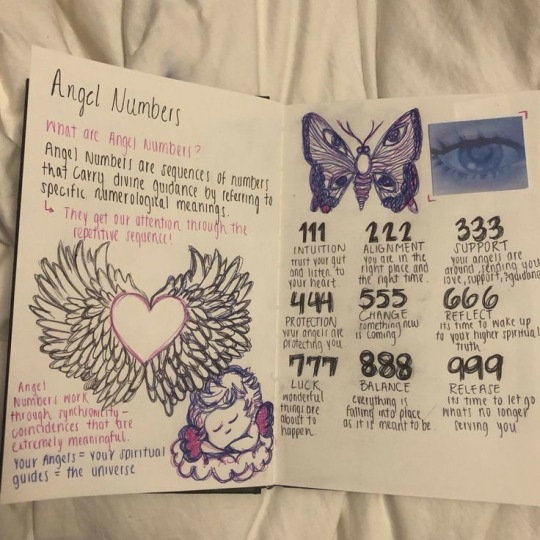 Angel Numbers
What are Angel Numbers?
Angel Numbers are sequences of numbers
that carry divine guidance by referring to
specific numerological meanings.
↳ They get our attention through the
repetitive sequence!
Angel
Numbers work
through synchronicity -
coincidences that are
extremely meaningful.
Your Angels = your spiritual
guides = the universe
111
INTUITION
trust your gut
and listen to
your heart.
222
ALIGNMENT
you are in the
right place and
the right time.
333
SUPPORT
your angels are
around, sending you
love, support, & guidance
444
PROTECTION
your angels are
protecting you
555
CHANGE
something new
is coming
666
REFLECT
its time to wake up
to your higher spiritual
truth
777
LUCK
wonderful
things are
about to
happen.
888
BALANCE
everything is
falling into place
as it is meant to be.
999
RELEASE
its time to let go
whats no longer
serving you